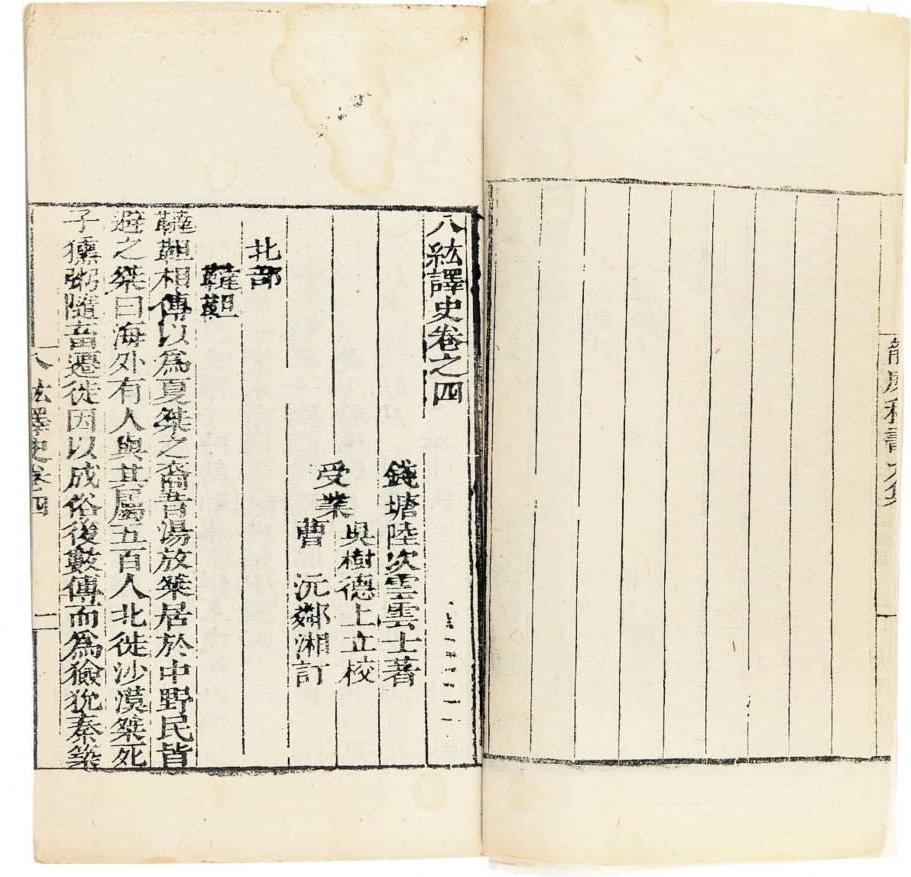 八紘譯史卷之四
錢塘陸次雲雲士著
受業
吳樹德上立校
曹沅鄰湘訂
北部
韃靼
韃靼相傳以爲夏桀之裔昔湯放桀居於中野民皆
避之桀曰海外有人與其屬五百人北徙沙漠桀死
子獯粥隨畜遷徙因以成俗後數傳而爲獫狁秦築
八紘譯史卷四
一